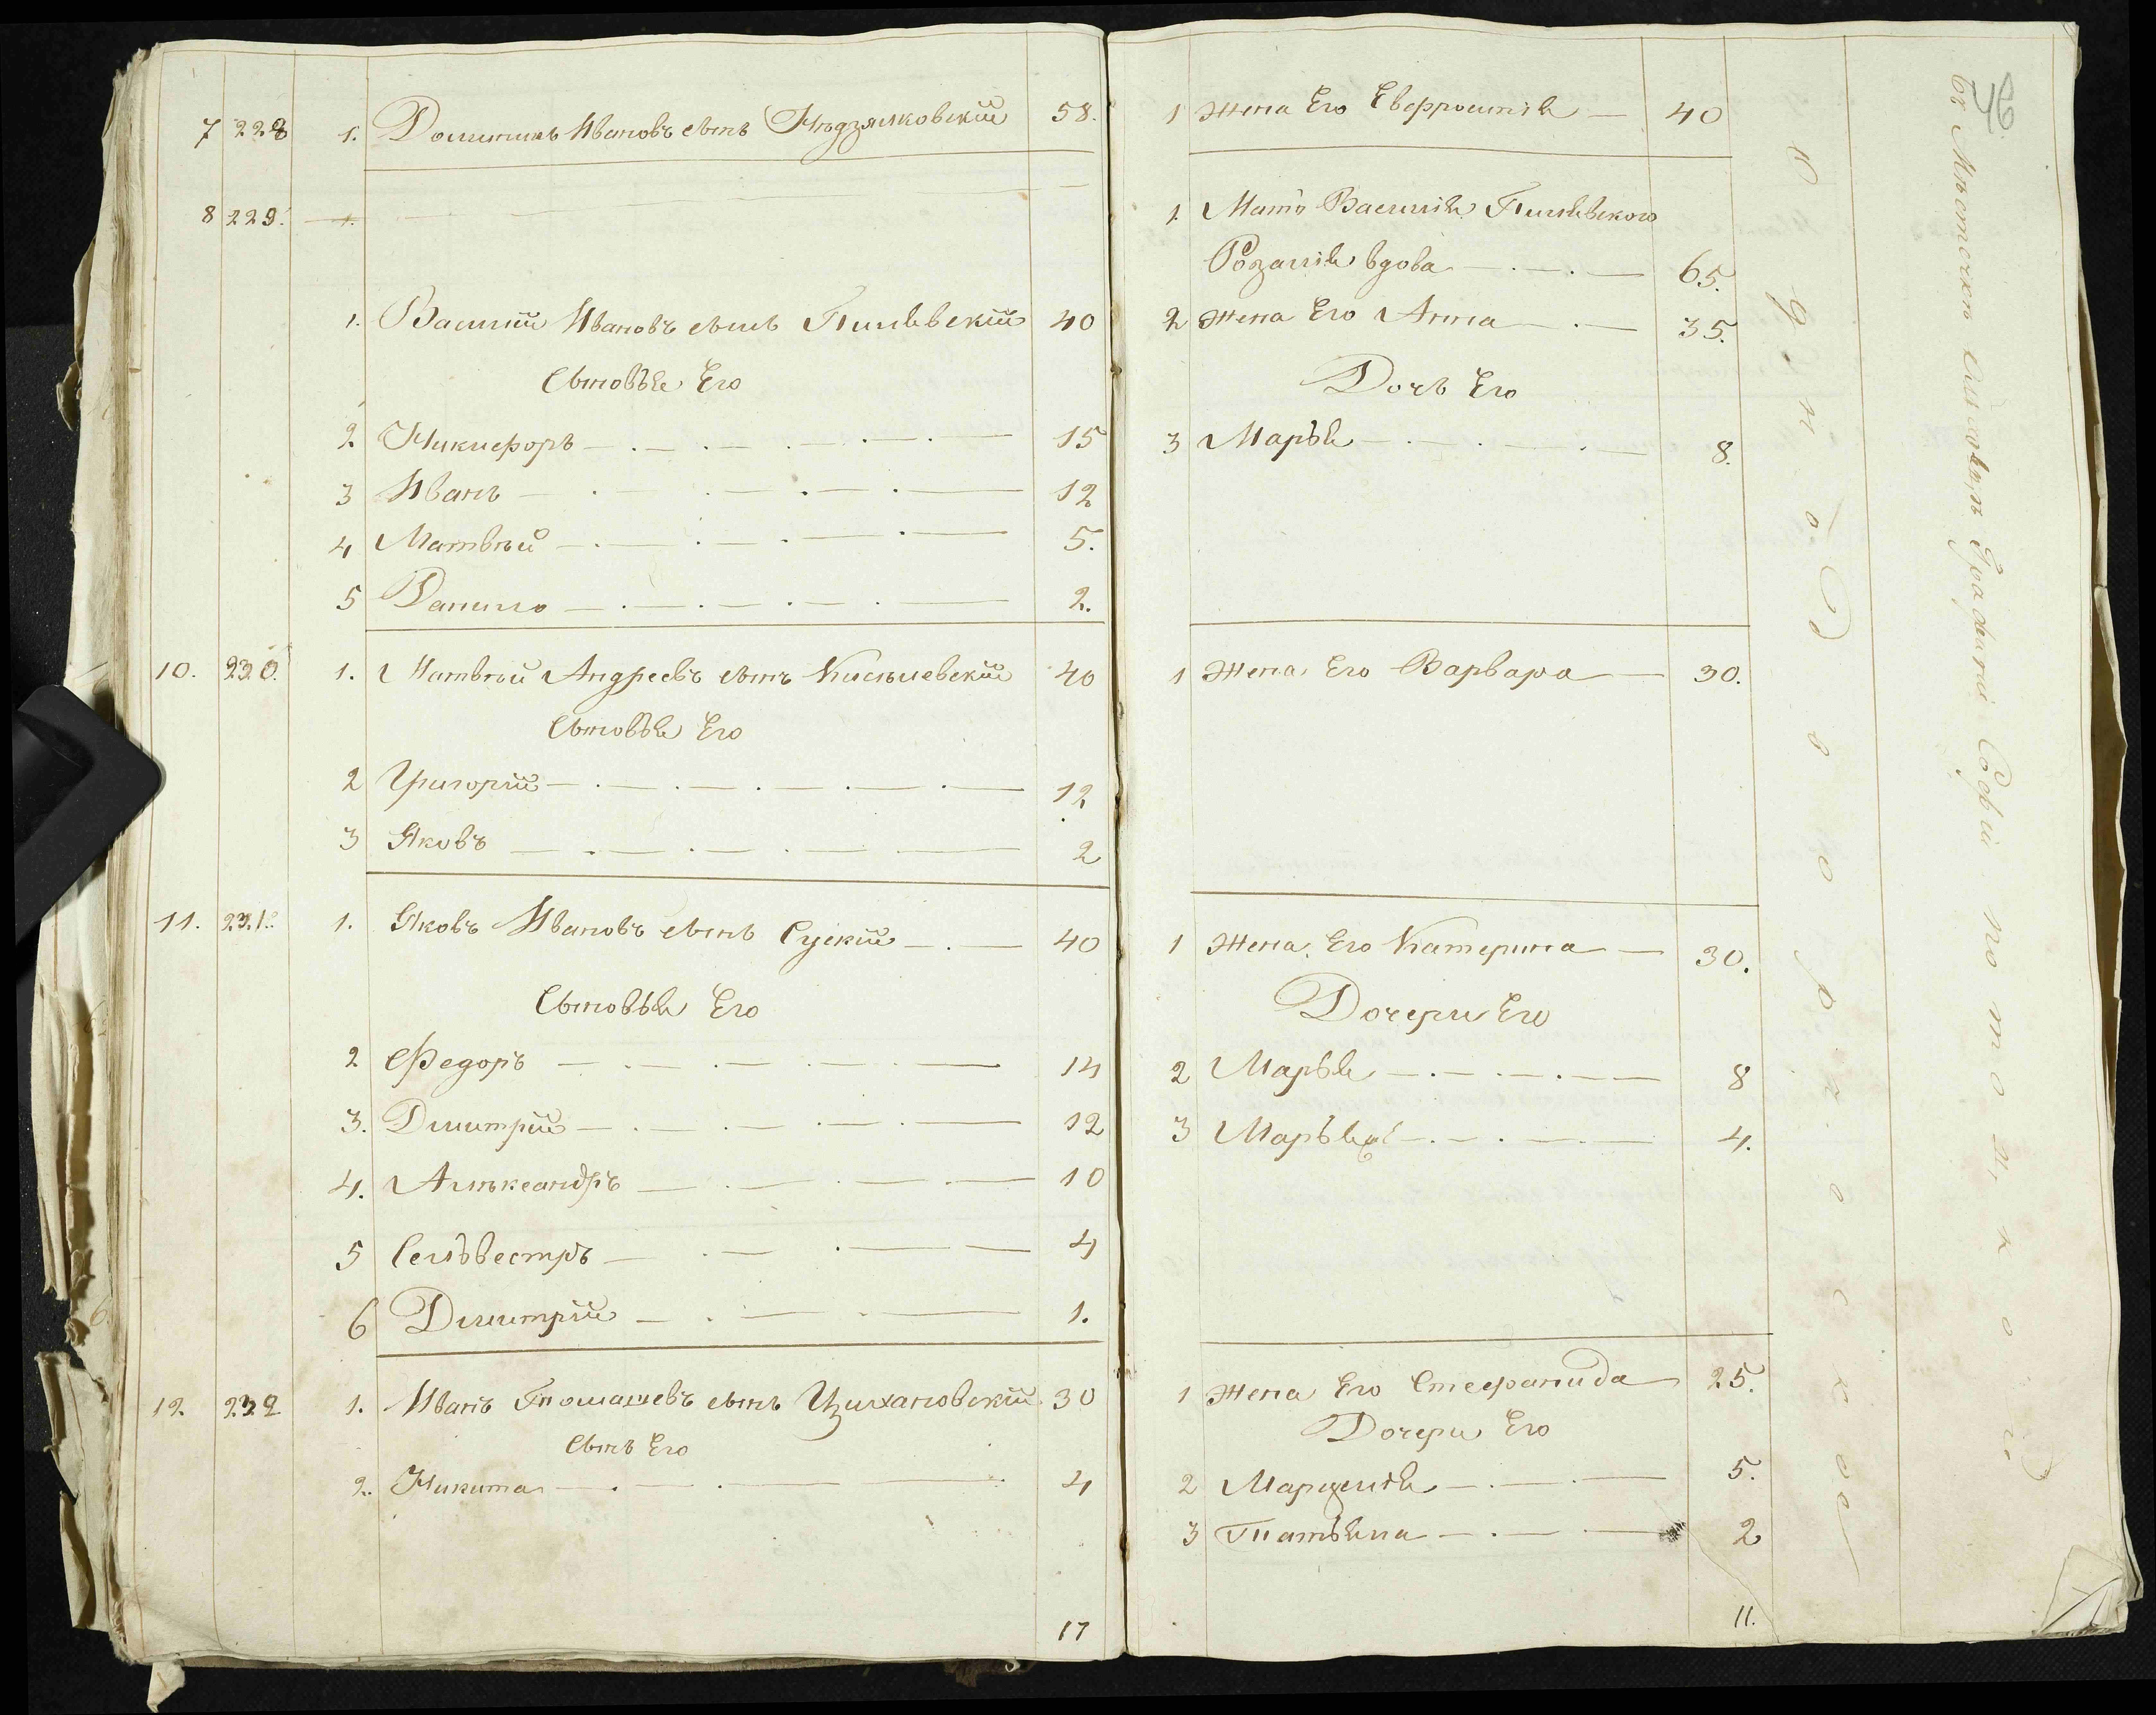 46.
7 228 1. Доминикъ Ивановъ сынъ Нѣдзялковскій 58.
8 229. 1.
1. Василій Ивановъ сынъ Пилявскій 40
Сыновья Его
2 Никифоръ 15
3 Иванъ 12
4 Матвѣй 5.
5 Данило 2.
10. 230. 1. Матвѣй Андреевъ сынъ Кисѣлевскій 40
Сыновья Его
2 Григорій 12
3 Яковъ 2
11. 231. 1. Яковъ Ивановъ сынъ Сускій 40
Сыновья Его
2 Федоръ 14
3. Дмитрій 12
4. Алѣксандръ 10
5 Селѣвестръ 4
6 Дмитрій 1.
12. 232 1. Иванъ Томашевъ сынъ Цихановскій 30
Сынъ Его
2. Никита 4
17
1 Жена Его Евфросинія 40
1. Мать Василія Пилявского
Розалія вдова 65.
2 Жена Его Анна 35.
Дочь Его
3 Марья 8.
1 Жена Его Варвара 30.
1 Жена Его Катерина 30.
Дочери Его
2 Марья 8
3 Марья 4.
1 Жена Его Стефанида 25.
Дочери Его
2 Марцелія 5.
3 Татьяна 2
11.
Однодворческое
Въ Мѣстечкѣ Графини Софіи Потоцкой